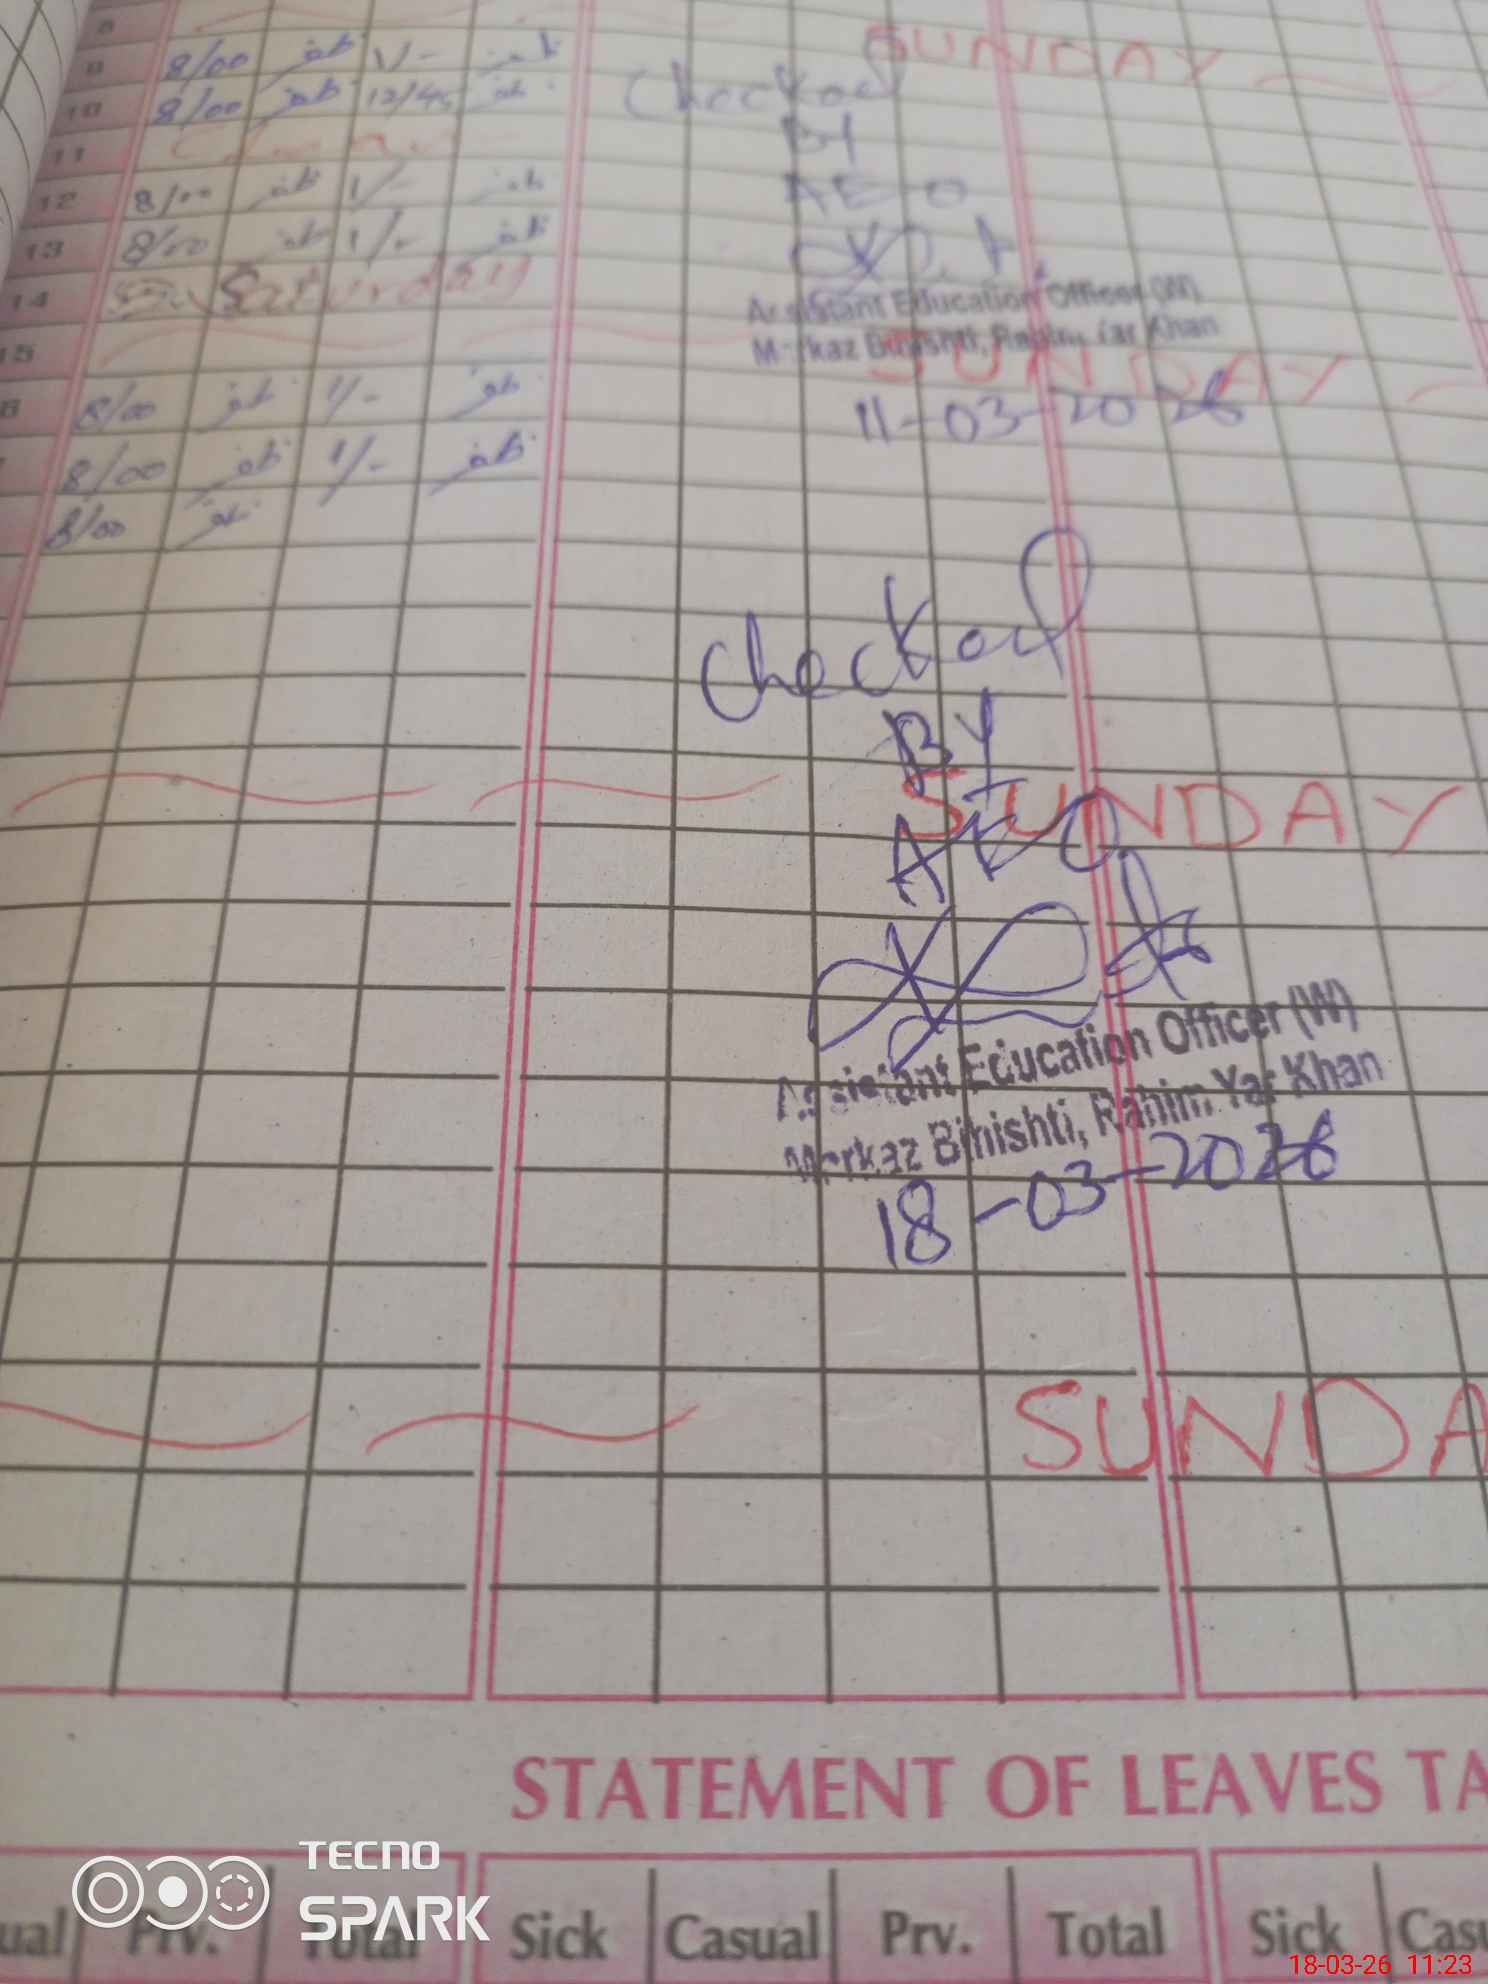 8
9 8/00 ظفر 1/- ظفر
SUNDAY
10 8/00 ظفر 12/45 ظفر
Checked
11
By
12 8/00 ظفر 1/- ظفر
AEO
13 8/00 ظفر 1/- ظفر
14 Saturday
Assistant Education Officer (W)
Markaz Bihishti, Rahim Yar Khan
15
SUNDAY
6 8/00 ظفر 1/- ظفر
11-03-2026
8/00 ظفر 1/- ظفر
8/00 ظفر
Checked
By
SUNDAY
AEO
Assistant Education Officer (W)
Markaz Bihishti, Rahim Yar Khan
18-03-2026
SUNDA
STATEMENT OF LEAVES TA
ual Prv. Total Sick Casual Prv. Total Sick Casu
TECNO
SPARK
18-03-26 11:23